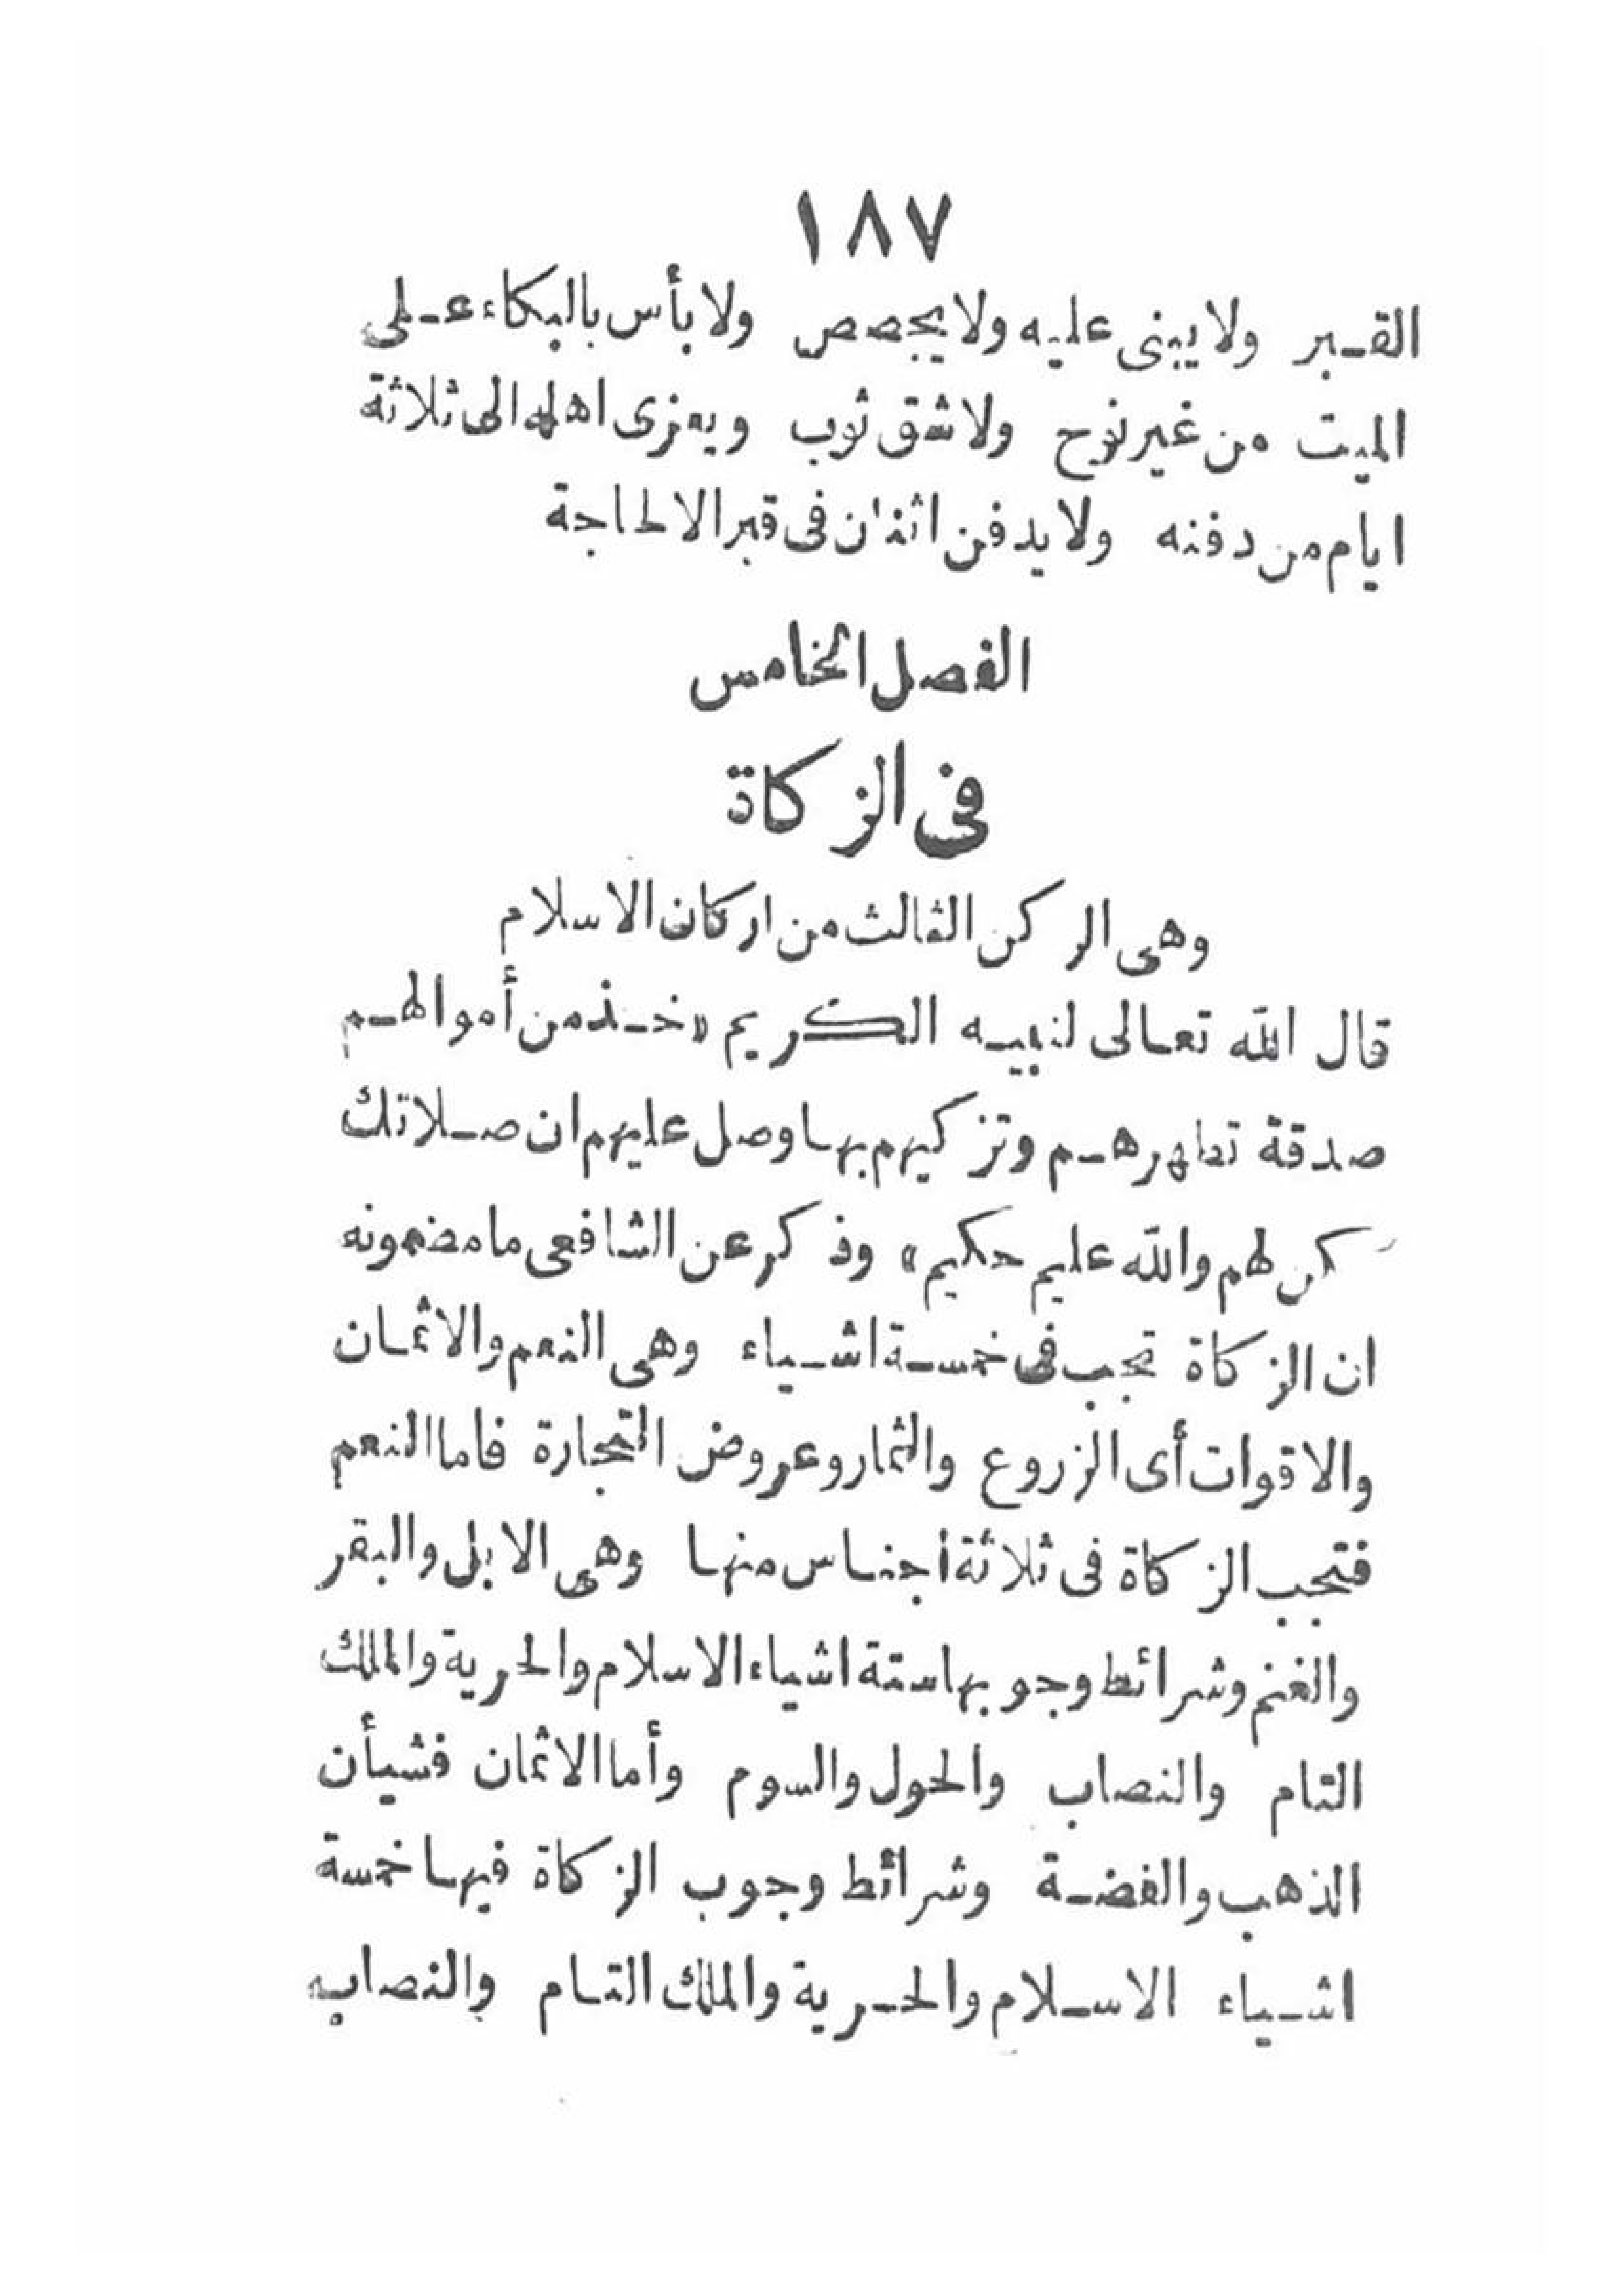 ١٨٧
القبر ولا يبنى عليه ولا يجصص ولا بأس بالبكاء على
الميت من غير نوح ولا شق ثوب ويعزى اهله الى ثلاثة
ايام من دفنه ولا يدفن اثنان فى قبر الا لحاجة
الفصل الخامس
فى الزكاة
وهى الركن الثالث من اركان الاسلام
قال الله تعالى لنبيه الكريم «خذ من أموالهم
صدقة تطهرهم وتزكيهم بها وصل عليهم ان صلاتك
سكن لهم والله عليم حكيم» وذكر عن الشافعى ما مضمونه
ان الزكاة تجب فى خمسة اشياء وهى النعم والاثمان
والاقوات أى الزروع والثمار وعروض التجارة فاما النعم
فتجب الزكاة فى ثلاثة أجناس منها وهى الابل والبقر
والغنم وشرائط وجوبها ستة اشياء الاسلام والحرية والملك
التام والنصاب والحول والسوم وأما الاثمان فشيأن
الذهب والفضة وشرائط وجوب الزكاة فيها خمسة
اشياء الاسلام والحرية والملك التام والنصاب